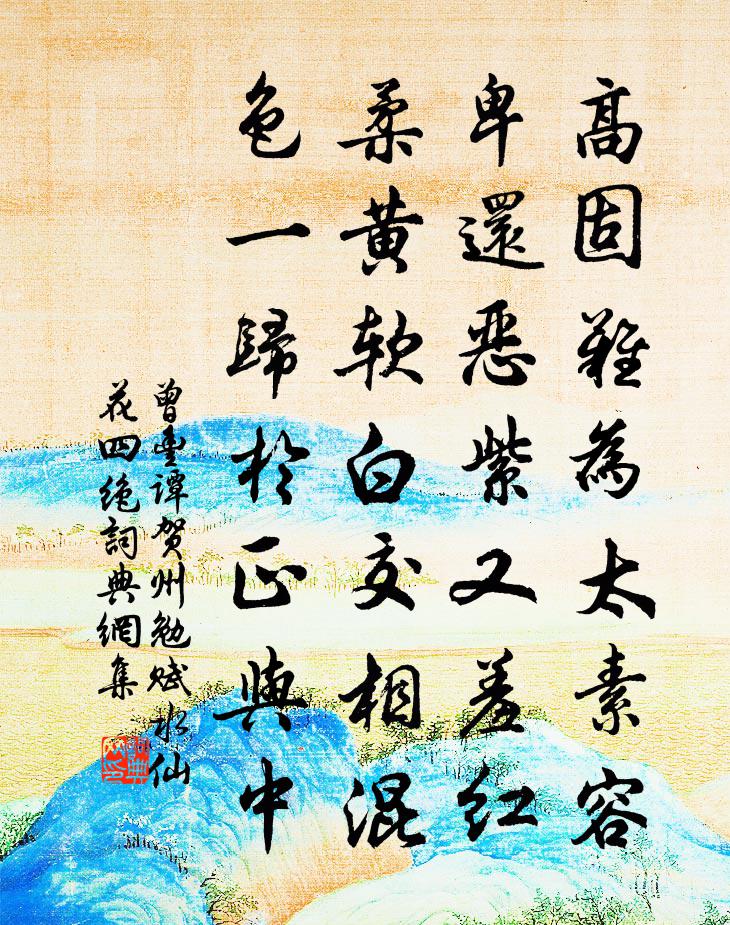 高固難為太素容
卑還惡紫又羞紅
柔黃软白交相混
色一歸於正與中
曾豊譚賀州勉賦水仙
花四絶詞典網集